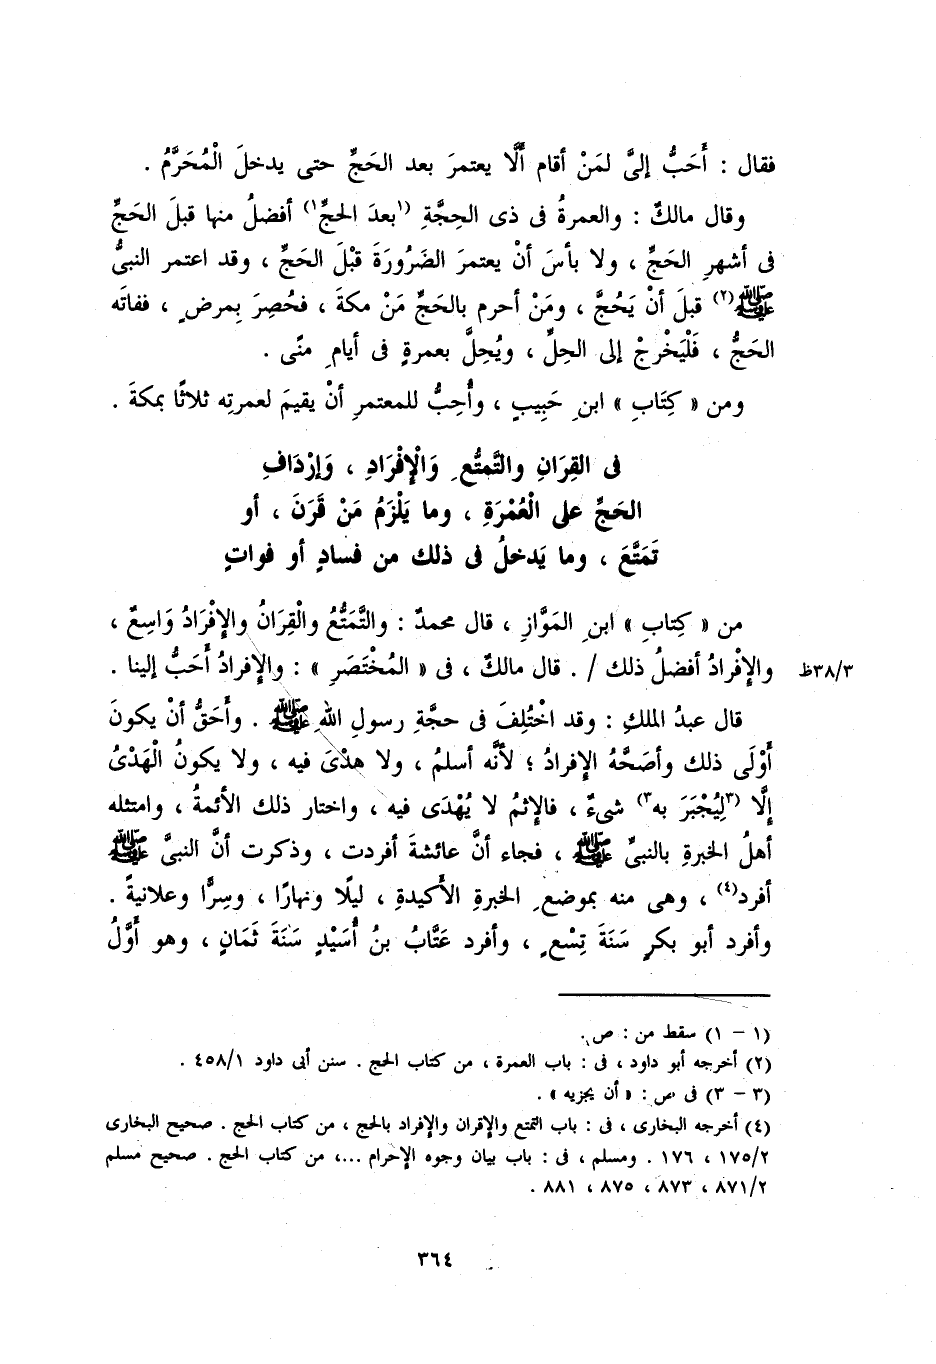 فقال : أَحَبُّ إلىَّ لمَنْ أقام أَلَّا يعتمرَ بعد الحَجِّ حتى يدخلَ الْمُحَرَّمُ .
وقال مالكٌ : والعمرةُ فى ذى الحِجَّةِ (١بعدَ الحجِّ١) أفضلُ منها قبلَ الحَجِّ
فى أشهرِ الحَجِّ ، ولا بأسَ أنْ يعتمرَ الصَرُورَةَ قبْلَ الحَجِّ ، وقد اعتمر النبىُّ
ﷺ(٢) قبلَ أنْ يَحُجَّ ، ومَنْ أحرم بالحَجِّ مَنْ مكةَ ، فحُصِرَ بِمرضٍ ، ففاتَه
الحَجُّ ، فَلْيَخْرجْ إلى الحِلِّ ، ويُحِلَّ بعمرةٍ فى أيامِ منًى .
ومن « كِتَابِ » ابنِ حَبِيبٍ ، وأُحِبُّ للمعتمرِ أنْ يقيمَ لعمرتِه ثلاثًا بمكةَ .
فى القِرَانِ والتَّمتُّعِ والْإِفْرَادِ ، وَإرْدَافِ
الحَجِّ على الْعُمْرَةِ ، وما يَلْزَمُ مَنْ قَرَنَ ، أو
تَمَتَّعَ ، وما يَدخلُ فى ذلك من فسادٍ أو فواتٍ
من « كِتابِ » ابنِ المَوَّازِ ، قال محمدٌ : والتَّمَتُّعُ والْقِرَانُ والإِفْرَادُ وَاسِعٌ ،
والإِفْرادُ أفضلُ ذلك / . قال مالكٌ ، فى « المُخْتَصَرِ » : والإِفرادُ أَحَبُّ إلينا . ٣٨/٣ظ
قال عبدُ الملكِ : وقد اخْتُلِفَ فى حجَّةِ رسولِ اللهِ ﷺ . وأَحَقُّ أنْ يكونَ
أَوْلَى ذلك وأصَحَّهُ الإفرادُ ؛ لأنَّه أسلمُ ، ولا هدْىَ فيه ، ولا يكونُ الْهَدْىُ
إلَّا (٣لِيُجْبَرَ به٣) شىءٌ ، فالإِثمُ لا يُهْدَى فيه ، واختار ذلك الأئمةُ ، وامتثله
أهلُ الخبرةِ بالنبىِّ ﷺ ، فجاء أنَّ عائشةَ أفردت ، وذكرت أنَّ النبىَّ ﷺ
أفرد(٤) ، وهى منه بموضعِ الخبرةِ الأَكيدةِ ، ليلًا ونهارًا ، وسِرًّا وعلانيةً .
وأفرد أبو بكرٍ سَنَةَ تِسْعٍ ، وأفرد عَتَّابُ بنُ أُسَيْدٍ سَنَةَ ثَمَانٍ ، وهو أَوَّلُ
(١ – ١) سقط من : ص .
(٢) أخرجه أبو داود ، فى : باب العمرة ، من كتاب الحج . سنن أبى داود ٤٥٨/١ .
(٣ – ٣) فى ص : « أن يجزيه » .
(٤) أخرجه البخارى ، فى : باب التمتع والإقران والإفراد بالحج ، من كتاب الحج . صحيح البخارى
١٧٥/٢ ، ١٧٦ . ومسلم ، فى : باب بيان وجوه الإحرام ...، من كتاب الحج . صحيح مسلم
٨٧١/٢ ، ٨٧٣ ، ٨٧٥ ، ٨٨١ .
٣٦٤